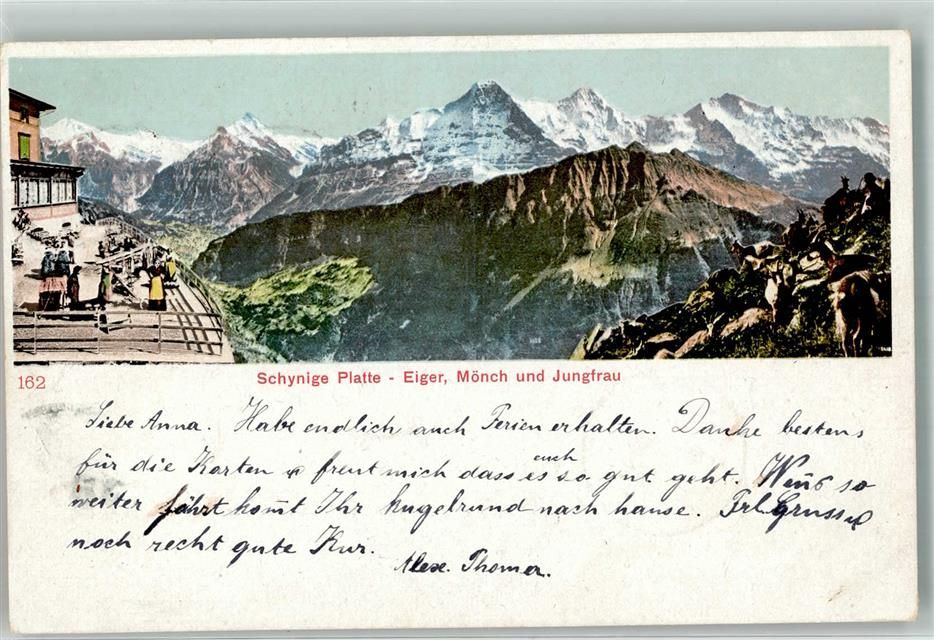 162
Schynige Platte - Eiger, Mönch und Jungfrau
Liebe Anna. Habe endlich auch Ferien erhalten. Danke bestens,
für die Karten u freut mich dass es euch so gut geht. Wenns so
weiter fährt kom̅t Ihr kugelrund nach hause. Frl. Gruss u
noch recht gute Kur.
Alex. Thomer.